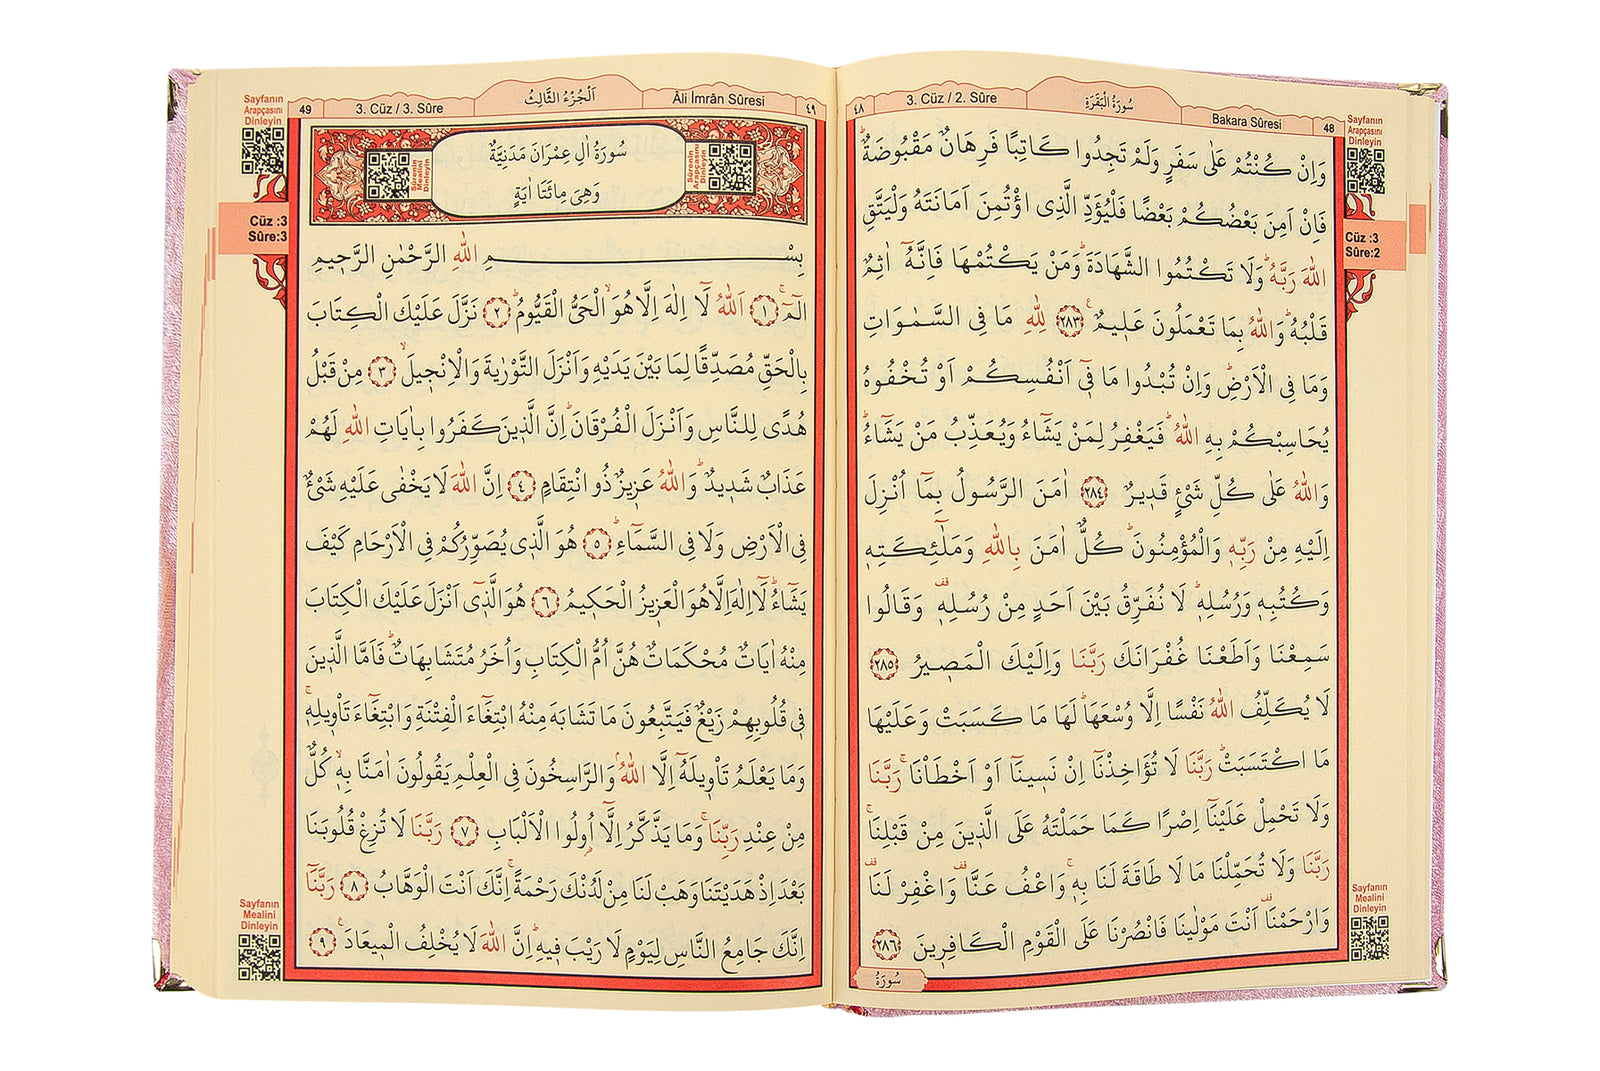 سُورَةُ الْبَقَرَةِ
٤٨
3. Cüz / 2. Sûre
Bakara Sûresi
48
Sayfanın
Arapçasını
Dinleyin
Cüz :3
Sûre:2
وَاِنْ كُنْتُمْ عَلٰى سَفَرٍ وَلَمْ تَجِدُوا كَاتِبًا فَرِهَانٌ مَقْبُوضَةٌۜ
فَاِنْ اَمِنَ بَعْضُكُمْ بَعْضًا فَلْيُؤَدِّ الَّذِى اؤْتُمِنَ اَمَانَتَهُ وَلْيَتَّقِ
اللّٰهَ رَبَّهُۜ وَلَا تَكْتُمُوا الشَّهَادَةَۜ وَمَنْ يَكْتُمْهَا فَاِنَّهُٓ اٰثِمٌ
قَلْبُهُۜ وَاللّٰهُ بِمَا تَعْمَلُونَ عَلِيمٌ۟ ﴿٢٨٣﴾ لِلّٰهِ مَا فِى السَّمٰوَاتِ
وَمَا فِى الْاَرْضِۜ وَاِنْ تُبْدُوا مَا فِٓى اَنْفُسِكُمْ اَوْ تُخْفُوهُ
يُحَاسِبْكُمْ بِهِ اللّٰهُۜ فَيَغْفِرُ لِمَنْ يَشَٓاءُ وَيُعَذِّبُ مَنْ يَشَٓاءُۜ
وَاللّٰهُ عَلٰى كُلِّ شَىْءٍ قَدِيرٌ ﴿٢٨٤﴾ اٰمَنَ الرَّسُولُ بِمَٓا اُنْزِلَ
اِلَيْهِ مِنْ رَبِّهِ وَالْمُؤْمِنُونَۜ كُلٌّ اٰمَنَ بِاللّٰهِ وَمَلٰٓئِكَتِهِ
وَكُتُبِهِ وَرُسُلِهِۜ لَا نُفَرِّقُ بَيْنَ اَحَدٍ مِنْ رُسُلِهِ۠ وَقَالُوا
سَمِعْنَا وَاَطَعْنَا غُفْرَانَكَ رَبَّنَا وَاِلَيْكَ الْمَصِيرُ ﴿٢٨٥﴾
لَا يُكَلِّفُ اللّٰهُ نَفْسًا اِلَّا وُسْعَهَاۜ لَهَا مَا كَسَبَتْ وَعَلَيْهَا
مَا اكْتَسَبَتْۜ رَبَّنَا لَا تُؤَاخِذْنَٓا اِنْ نَسِينَٓا اَوْ اَخْطَأْنَاۚ رَبَّنَا
وَلَا تَحْمِلْ عَلَيْنَٓا اِصْرًا كَمَا حَمَلْتَهُ عَلَى الَّذِينَ مِنْ قَبْلِنَاۚ
رَبَّنَا وَلَا تُحَمِّلْنَا مَا لَا طَاقَةَ لَنَا بِهِۚ وَاعْفُ عَنَّا۠ وَاغْفِرْ لَنَا۠
وَارْحَمْنَا۠ اَنْتَ مَوْلٰينَا فَانْصُرْنَا عَلَى الْقَوْمِ الْكَافِرِينَ ﴿٢٨٦﴾
سُورَةُ
Sayfanın
Mealini
Dinleyin
49
3. Cüz / 3. Sûre
اَلْجُزْءُ الثَّالِثُ
Âli İmrân Sûresi
٤٩
Sayfanın
Arapçasını
Dinleyin
Cüz :3
Sûre:3
Sûrenin
Arapçasını
Dinleyin
سُورَةُ اٰلِ عِمْرَانَ مَدَنِيَّةٌ
وَهِىَ مِائَتَا اٰيَةٍ
Sûrenin
Mealini
Dinleyin
بِسْمِ اللّٰهِ الرَّحْمٰنِ الرَّحِيمِ
الٓمٓۚ ﴿١﴾ اَللّٰهُ لَٓا اِلٰهَ اِلَّا هُوَۙ الْحَىُّ الْقَيُّومُۜ ﴿٢﴾ نَزَّلَ عَلَيْكَ الْكِتَابَ
بِالْحَقِّ مُصَدِّقًا لِمَا بَيْنَ يَدَيْهِ وَاَنْزَلَ التَّوْرٰيةَ وَالْاِنْجِيلَۙ ﴿٣﴾ مِنْ قَبْلُ
هُدًى لِلنَّاسِ وَاَنْزَلَ الْفُرْقَانَۜ اِنَّ الَّذِينَ كَفَرُوا بِاٰيَاتِ اللّٰهِ لَهُمْ
عَذَابٌ شَدِيدٌۜ وَاللّٰهُ عَزِيزٌ ذُو انْتِقَامٍ ﴿٤﴾ اِنَّ اللّٰهَ لَا يَخْفٰى عَلَيْهِ شَىْءٌ
فِى الْاَرْضِ وَلَا فِى السَّمَٓاءِۜ ﴿٥﴾ هُوَ الَّذِى يُصَوِّرُكُمْ فِى الْاَرْحَامِ كَيْفَ
يَشَٓاءُۜ لَٓا اِلٰهَ اِلَّا هُوَ الْعَزِيزُ الْحَكِيمُ ﴿٦﴾ هُوَ الَّذِٓى اَنْزَلَ عَلَيْكَ الْكِتَابَ
مِنْهُ اٰيَاتٌ مُحْكَمَاتٌ هُنَّ اُمُّ الْكِتَابِ وَاُخَرُ مُتَشَابِهَاتٌۜ فَاَمَّا الَّذِينَ
فِى قُلُوبِهِمْ زَيْغٌ فَيَتَّبِعُونَ مَا تَشَابَهَ مِنْهُ ابْتِغَٓاءَ الْفِتْنَةِ وَابْتِغَٓاءَ تَأْوِيلِهِۚ
وَمَا يَعْلَمُ تَأْوِيلَهُٓ اِلَّا اللّٰهُۢ وَالرَّاسِخُونَ فِى الْعِلْمِ يَقُولُونَ اٰمَنَّا بِهِۙ كُلٌّ
مِنْ عِنْدِ رَبِّنَاۚ وَمَا يَذَّكَّرُ اِلَّٓا اُولُوا الْاَلْبَابِ ﴿٧﴾ رَبَّنَا لَا تُزِغْ قُلُوبَنَا
بَعْدَ اِذْ هَدَيْتَنَا وَهَبْ لَنَا مِنْ لَدُنْكَ رَحْمَةًۚ اِنَّكَ اَنْتَ الْوَهَّابُ ﴿٨﴾ رَبَّنَٓا
اِنَّكَ جَامِعُ النَّاسِ لِيَوْمٍ لَا رَيْبَ فِيهِۜ اِنَّ اللّٰهَ لَا يُخْلِفُ الْمِيعَادَ۟ ﴿٩﴾
Sayfanın
Mealini
Dinleyin